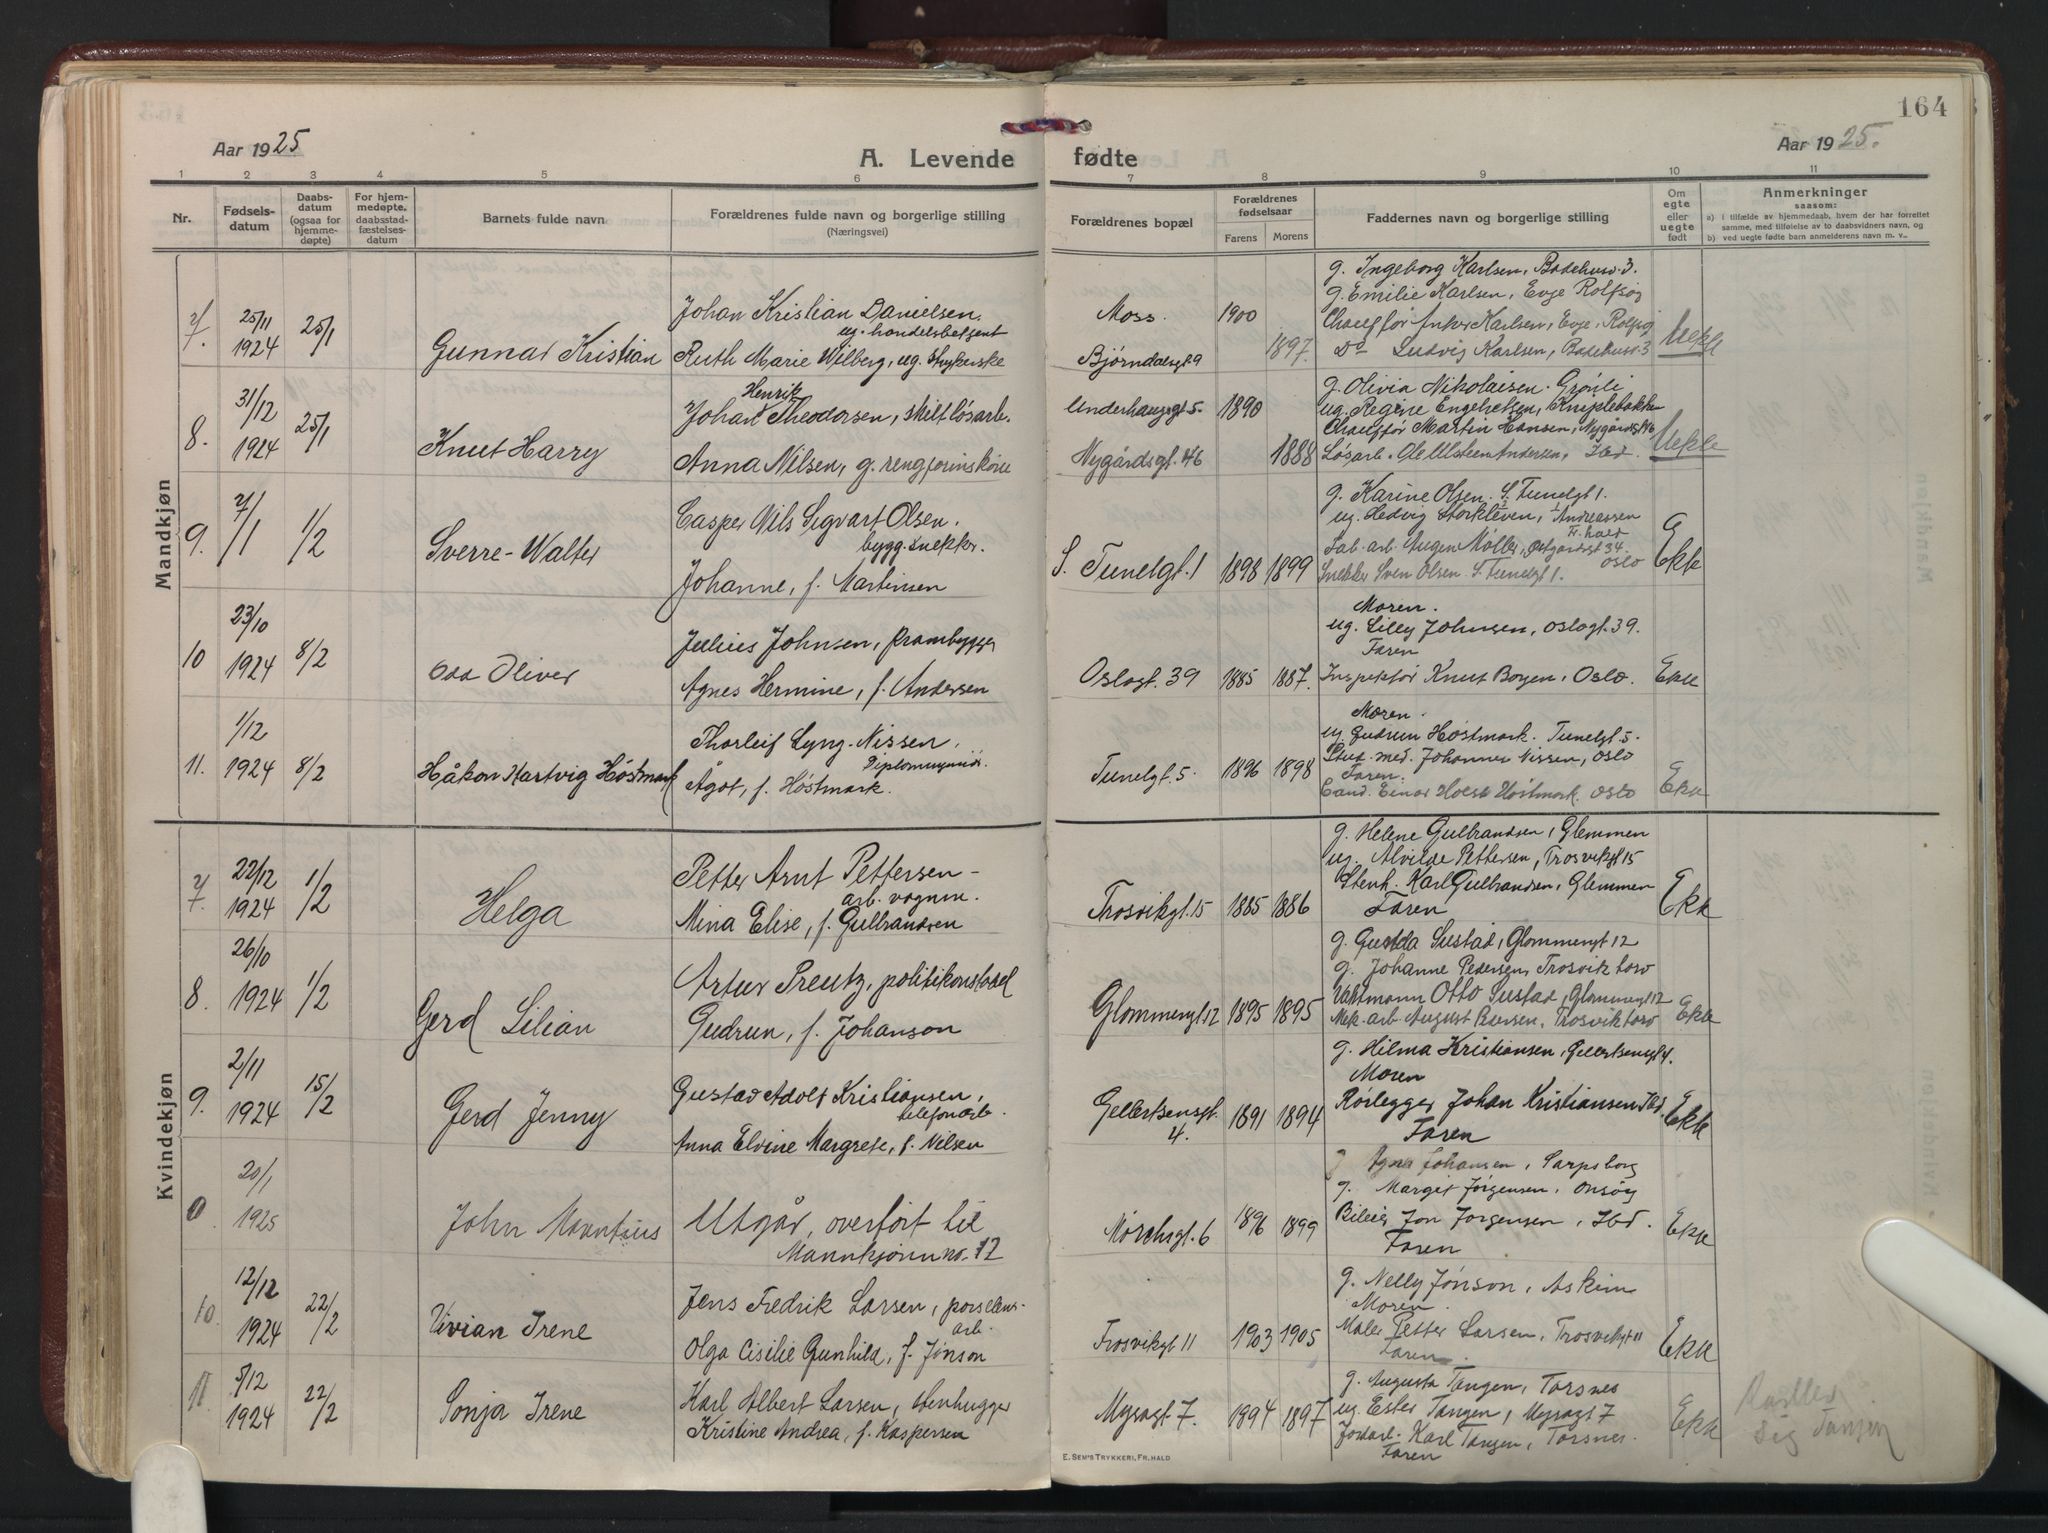 164
Aar 1925
A. Levende
fødte
Aar 1925.
1 2 3 4 5 6 7 8 9 10 11
Nr.
Fødsels-
datum
Daabs-
datum
(ogsaa for
hjemme-
døpte)
For hjem-
medøpte,
daabsstad-
fæstelses-
datum
Barnets fulde navn
Forældrenes fulde navn og borgerlige stilling
(Næringsvei)
Forældrenes bopæl
Forældrenes
fødselsaar
Farens Morens
Faddernes navn og borgerlige stilling
Om
egte
eller
uegte
født
Anmerkninger
saasom:
a) i tilfælde av hjemmedaab, hvem der har forrettet
samme, med tilføielse av to daabsvidners navn, og
b) ved uegte fødte barn anmelderens navn m. v.
Mandkjøn
7.
25/11
1924
25/1
Gunnar Kristian
Johan Kristian Danielsen.
ug. handelsbetjent
Ruth Marie Wilberg, ug. Strykerske
Moss.
Bjørndalsgt 9
1900
1897.
g. Ingeborg Karlsen, Badehusv. 3.
g. Emilie Karlsen, Evje Rolfsøy
Chauffør Anker Karlsen, Evje, Rolfsøj
Do Ludvig Karlsen, Badehusv. 3
Uekte
8.
31/12
1924
25/1
Knut Harry
Henrik
Johan Theodorsen, skilt løsarb.
Anna Nilsen, g. rengjørinskone
Underhaugsgt. 5.
Nygårdsgt. 46
1890
1888
g. Olivia Nikolaisen. Grønli
ug. Regine Engebretsen,
Chauffør Martin Hansen, Nygårdsgt 46
Løsarb. Ole Ulsteen Andersen, Ibd.
Uekte
9.
7/1
1/2
Sverre-Walter
Casper Nils Sigvart Olsen.
bygg. snekker.
Johanne, f. Martinsen
S. Tunelgt. 1
1898 1899
g. Karine Olsen. S. Tunelgt 1.
ug. Hedvig Storkleven, Andreassen
Fr. hald
Fab. arb. Møller, Østgårdsgt 34.
Oslo
Snekker Sven Olsen. S. Tunelgt 1.
Ekte
10
23/10
1924
8/2
Odd Oliver
Julius Johnsen, prambygger
Agnes Hermine, f. Andersen
Oslogt. 39
1885 1887.
Moren.
ug. Lilly Johnsen, Oslogt. 39.
Faren
Inspektør Knut Boyen, Oslo.
Ekte
11.
1/12
1924
8/2
Håkon Hartvig Høstmark
Thorleif Lyng-Nissen,
Diplomingeniør.
Ågot, f. Høstmark.
Tunelgt. 5.
1896 1898
Moren.
ug. Gudrun Høstmark. Tunelgt. 5.
Stud. med. Johannes Nissen, Oslo
Faren.
Cand. Einar Holst Høstmark. Oslo
Ekte
Kvindekjøn
7.
22/12
1924
1/2
Helga
Petter Arnt Pettersen-
arb. vognm.
Mina Elise, f. Gulbrandsen
Trosvikgt. 15
1885 1886
g. Helene Gulbrandsen, Glemmen
ug. Alvilde Pettersen, Trosvikgt 15
Stenh. Karl Gulbrandsen, Glemmen
Faren
Ekte
8.
26/10
1924
1/2
Gerd Lilian
Artur Preutz, politikonstabel
Gudrun, f. Johanson
Glommengt 12
1895 1895
g. Gusta Sustad, Glommengt 12
g. Johanne Pedersen, Trosvik torv
Vaktmann Otto Sustad, Glommengt 12
Mek. arb. August, Trosvik torv
Ekte
9.
2/11
1924
15/2
Gerd Jenny
Gustav Adolf Kristiansen,
telefonarb.
Anna Elvine Margrete, f. Nilsen
Gellertsensgt.
4.
1891 1894
g. Hilma Kristiansen, Gellertsensgt 4.
Moren
Rørlegger Johan Kristiansen Ibd.
Faren
Ekte
20/1
1925
John Mauritius
Utgår, overført til
Mannkjønn no. 12
Mørchsgt. 6
1896 1899
g. Agna Johansen, Sarpsborg
g. Margit Jørgensen, Onsøy
Bileier Jon Jørgensen, Ibd.
Faren
Ekte
10.
12/12
1924
22/2
Vivian Irene
Jens Fredrik Larsen, porselens-
arb.
Olga Cisilie Gunhild, f. Jønson
Trosvikgt 11
1903 1905
g. Nelly Jønson, Askim
Moren.
Maler Petter Larsen, Trosvikgt 11
Faren.
Ekte
11.
5/12
1924
22/2
Sonja Irene
Karl Albert Larsen, stenhugger
Kristine Andrea, f. Kaspersen
Myragt 7.
1894 1897
g. Augusta Tangen, Torsnes
ug. Ester Tangen, Myragt 7
Jordarb. Karl Tangen, Torsnes.
Faren
Ekte
Kaller
sig Tangen
E. SEM'S TRYKKERI, FR.HALD